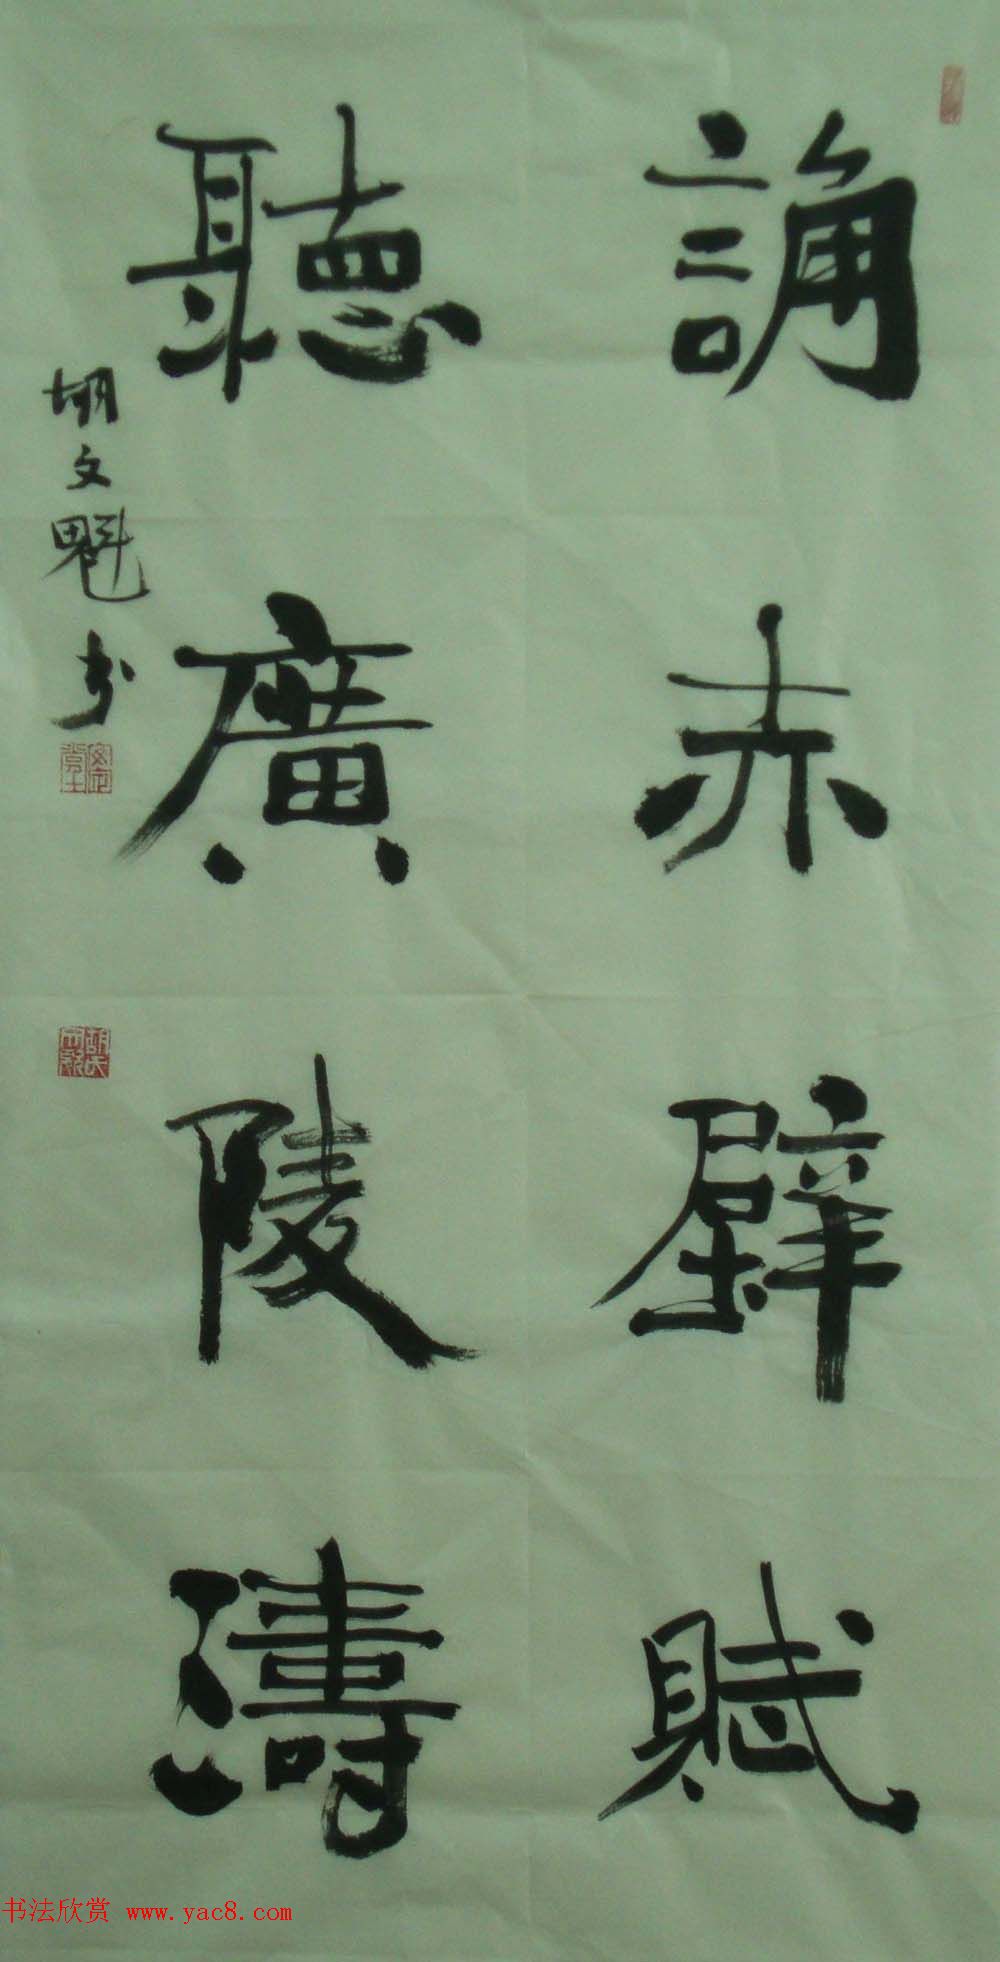 誦赤壁賦
聽廣陵濤
胡文魁书
胡氏
书法欣赏 www.yac8.com